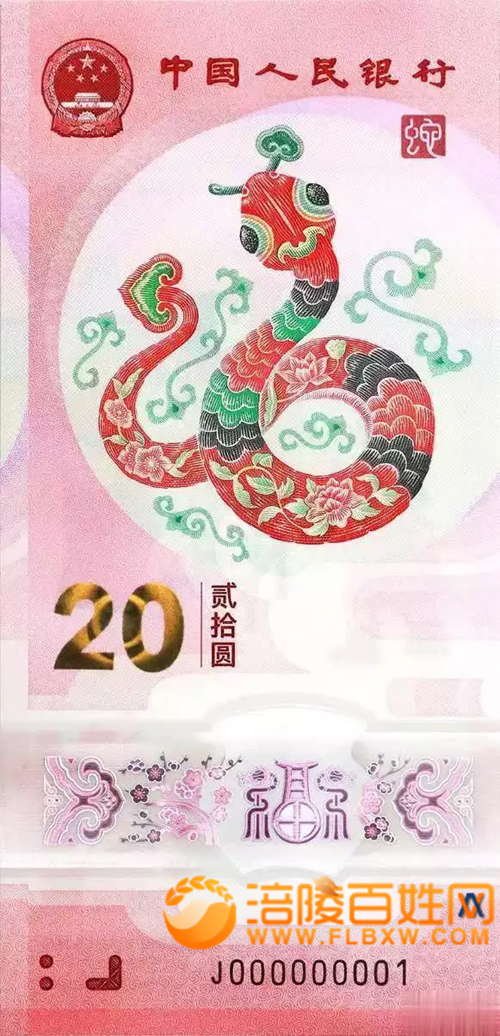 中国人民银行
蛇
20
贰拾圆
涪陵百姓网
WWW.FLBXW.COM
J000000001